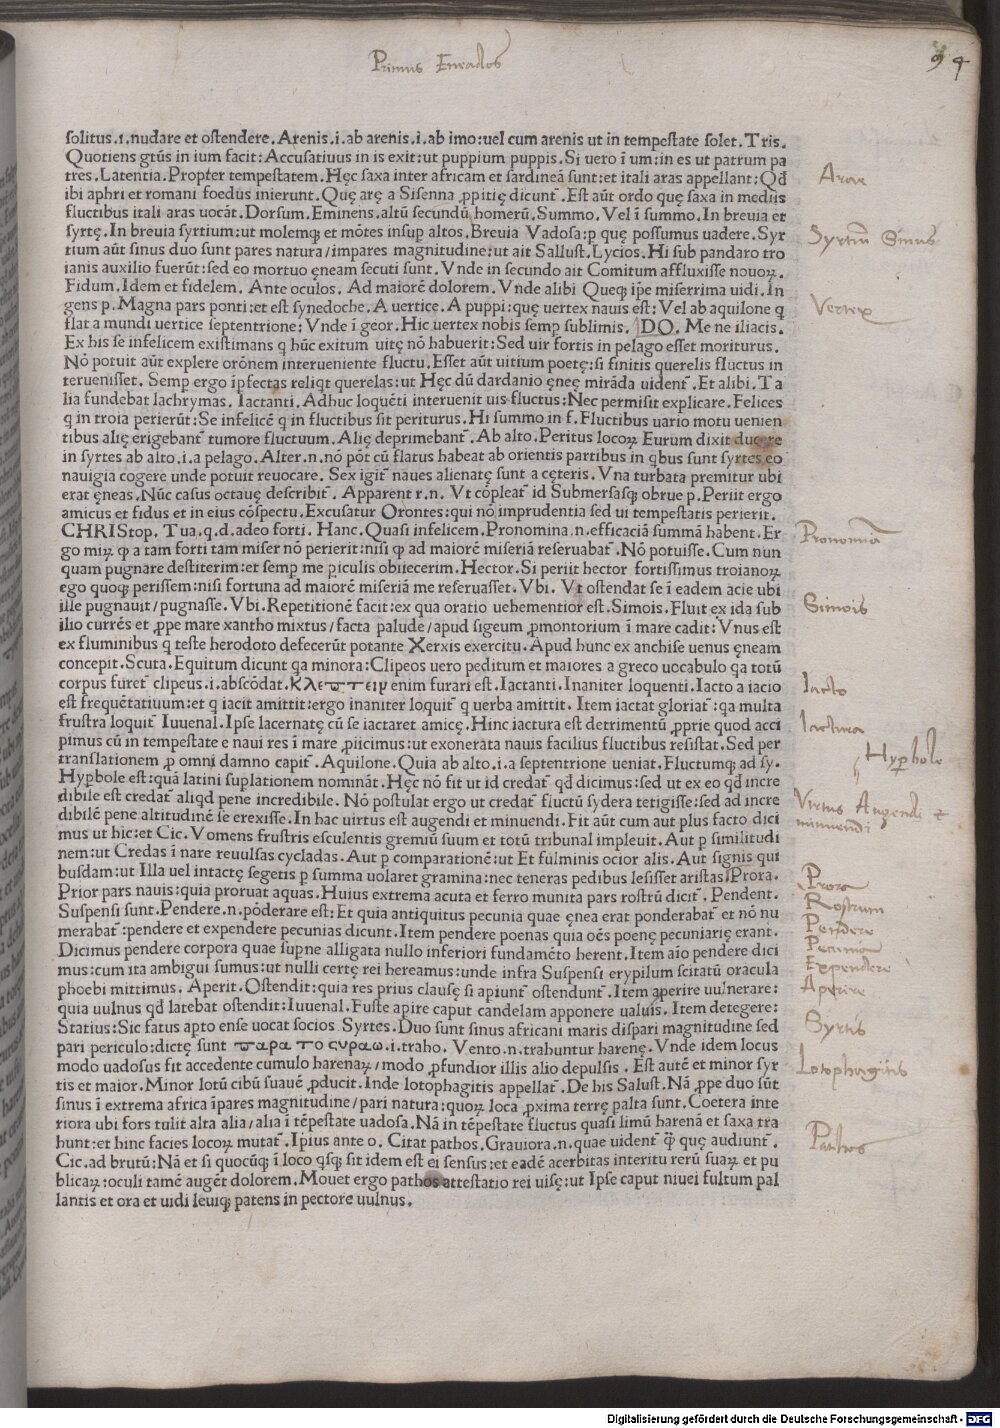 Primus Eneados
94
solitus.i.nudare et ostendere. Arenis.i.ab arenis.i.ab imo:uel cum arenis ut in tempestate solet. Tris.
Quotiens gtūs in ium facit: Accusatiuus in is exit:ut puppium puppis. Si uero ī um:in es ut patrum pa
tres. Latentia. Propter tempestatem. Hęc saxa inter africam et sardineā sunt:et itali aras appellant: Qd
ibi aphri et romani foedus inierunt. Quę arę a Sisenna ꝓpitię dicunt᷑. Est aūt ordo quę saxa in mediis
fluctibus itali aras uocāt. Dorsum. Eminens.altū secundū homerū. Summo. Vel ī summo. In breuia et
syrtę. In breuia syrtium:ut molemqꝫ et mōtes insuꝑ altos. Breuia Vadosa:ꝑ quę possumus uadere. Syr
tium aūt sinus duo sunt pares natura/impares magnitudine:ut ait Sallust. Lycios. Hi sub pandaro tro
ianis auxilio fuerūt:sed eo mortuo ęneam secuti sunt. Vnde in secundo ait Comitum affluxisse nouoꝝ.
Fidum. Idem et fidelem. Ante oculos. Ad maiorē dolorem. Vnde alibi Queqꝫ īpe miserrima uidi. In
gens p. Magna pars ponti:et est synedoche. A uertice. A puppi:quę uertex nauis est: Vel ab aquilone q
flat a mundi uertice septentrione: Vnde ī geor. Hic uertex nobis semꝑ sublimis. DO. Me ne iliacis.
Ex his se infelicem existimans q hūc exitum uitę nō habuerit: Sed uir fortis in pelago esset moriturus.
Nō potuit aūt explere orōnem interueniente fluctu. Esset aūt uitium poetę:si finitis querelis fluctus in
teruenisset. Semꝑ ergo īꝑfectas reliqt querelas:ut Hęc dū dardanio ęneę mirāda uident᷑. Et alibi. Ta
lia fundebat lachrymas. Iactanti. Adhuc loquēti interuenit uis fluctus: Nec permisit explicare. Felices
q in troia perierūt: Se infelicē q in fluctibus sit periturus. Hi summo in f. Fluctibus uario motu uenien
tibus alię erigebant᷑ tumore fluctuum. Alię deprimebant᷑. Ab alto. Peritus locoꝝ Eurum dixit ducere
in syrtes ab alto.i.a pelago. Alter.n.nō pōt cū flatus habeat ab orientis partibus in qbus sunt syrtes eo
nauigia cogere unde potuit reuocare. Sex igit᷑ naues alienatę sunt a cęteris. Vna turbata premitur ubi
erat ęneas. Nūc casus octauę describit᷑. Apparent r.n. Vt cōpleat᷑ id Submersasqꝫ obrue p. Periit ergo
amicus et fidus et in eius cōspectu. Excusatur Orontes:qui nō imprudentia sed ui tempestatis perierit.
CHRIStop. Tua.q.d.adeo forti. Hanc. Quasi infelicem. Pronomina.n.efficaciā summā habent. Er
go miꝝ ꝙ a tam forti tam miser nō perierit:nisi ꝙ ad maiorē miseriā reseruabat᷑. Nō potuisse. Cum nun
quam pugnare destiterim:et semꝑ me ꝑiculis obiiecerim. Hector. Si periit hector fortissimus troianoꝝ
ego quoqꝫ perissem:nisi fortuna ad maiorē miseriā me reseruasset. Vbi. Vt ostendat se ī eadem acie ubi
ille pugnauit/pugnasse. Vbi. Repetitionē facit:ex qua oratio uehementior est. Simois. Fluit ex ida sub
ilio currēs et ꝓpe mare xantho mixtus/facta palude/apud sigeum ꝓmontorium ī mare cadit: Vnus est
ex fluminibus q teste herodoto defecerūt potante Xerxis exercitu. Apud hunc ex anchise uenus ęneam
concepit. Scuta. Equitum dicunt qa minora: Clipeos uero peditum et maiores a greco uocabulo qa totū
corpus furet᷑ clipeus.i.abscōdat. κλεπτειν enim furari est. Iactanti. Inaniter loquenti. Iacto a iacio
est frequētatiuum:et q iacit amittit:ergo inaniter loquit᷑ q uerba amittit. Item iactat gloriat᷑:qa multa
frustra loquit᷑ Iuuenal. Ipse lacernatę cū se iactaret amicę. Hinc iactura est detrimentū ꝓprie quod acci
pimus cū in tempestate e naui res ī mare ꝓiicimus:ut exonerata nauis facilius fluctibus resistat. Sed per
translationem ꝓ omni damno capit᷑. Aquilone. Quia ab alto.i.a septentrione ueniat. Fluctumqꝫ ad sy.
Hyꝑbole est:quā latini suplationem nomināt. Hęc nō fit ut id credat᷑ qd dicimus:sed ut ex eo qd incre
dibile est credat᷑ aliqd pene incredibile. Nō postulat ergo ut credat᷑ fluctū sydera tetigisse:sed ad incre
dibilē pene altitudinē se erexisse. In hac uirtus est augendi et minuendi. Fit aūt cum aut plus facto dici
mus ut hic:et Cic. Vomens frustris esculentis gremiū suum et totū tribunal impleuit. Aut ꝑ similitudi
nem:ut Credas ī nare reuulsas cycladas. Aut ꝑ comparationē:ut Et fulminis ocior alis. Aut signis qui
busdam:ut Illa uel intactę segetis ꝑ summa uolaret gramina:nec teneras pedibus lesisset aristas. Prora.
Prior pars nauis:quia proruat aquas. Huius extrema acuta et ferro munita pars rostrū dicit᷑. Pendent.
Suspensi sunt. Pendere.n.pōderare est: Et quia antiquitus pecunia quae ęnea erat ponderabat᷑ et nō nu
merabat᷑:pendere et expendere pecunias dicunt. Item pendere poenas quia oēs poenę pecuniarię erant.
Dicimus pendere corpora quae supne alligata nullo inferiori fundamēto herent. Item aīo pendere dici
mus:cum ita ambigui sumus:ut nulli certę rei hereamus:unde infra Suspensi erypilum scitatū oracula
phoebi mittimus. Aperit. Ostendit:quia res prius clausę si apiunt᷑ ostendunt᷑. Item aperire uulnerare:
quia uulnus qd latebat ostendit: Iuuenal. Fuste apire caput candelam apponere ualuis. Item detegere:
Statius: Sic fatus apto ense uocat socios Syrtes. Duo sunt sinus africani maris dispari magnitudine sed
pari periculo:dictę sunt παρα το συραω.i.traho. Vento.n.trahuntur harenę. Vnde idem locus
modo uadosus fit accedente cumulo harenaꝝ/modo ꝓfundior illis alio depulsis. Est autē et minor syr
tis et maior. Minor lotū cibū suauē ꝓducit. Inde lotophagitis appellat᷑. De his Salust. Nā ꝓpe duo sūt
sinus ī extrema africa īpares magnitudine/pari natura:quoꝝ loca ꝓxima terrę palta sunt. Coetera inte
riora ubi fors tulit alta alia/alia ī tēpestate uadosa. Nā in tēpestate fluctus quasi limū harenā et saxa tra
hunt:et hinc facies locoꝝ mutat᷑. Ipius ante o. Citat pathos. Grauiora.n.quae uident᷑ ꝙ̄ quę audiunt᷑.
Cic.ad brutū: Nā et si quocūqꝫ ī loco qsqꝫ sit idem est ei sensus:et eadē acerbitas interitu rerū suaꝝ et pu
blicaꝝ:oculi tamē augēt dolorem. Mouet ergo pathos attestatio rei uisę:ut Ipse caput niuei fultum pal
lantis et ora et uidi leuiqꝫ patens in pectore uulnus.
Arae
Syrtiū Sinus
Vertex
Pronomina
Simois
Iacto
Iactura
Hyꝑbole
Virtus Augendi et
minuendi
Prora
Rostrum
Pendere
Pecunia
Expendere
Aperire
Syrtis
Lotophagitis
Pathos
Digitalisierung gefördert durch die Deutsche Forschungsgemeinschaft - DFG